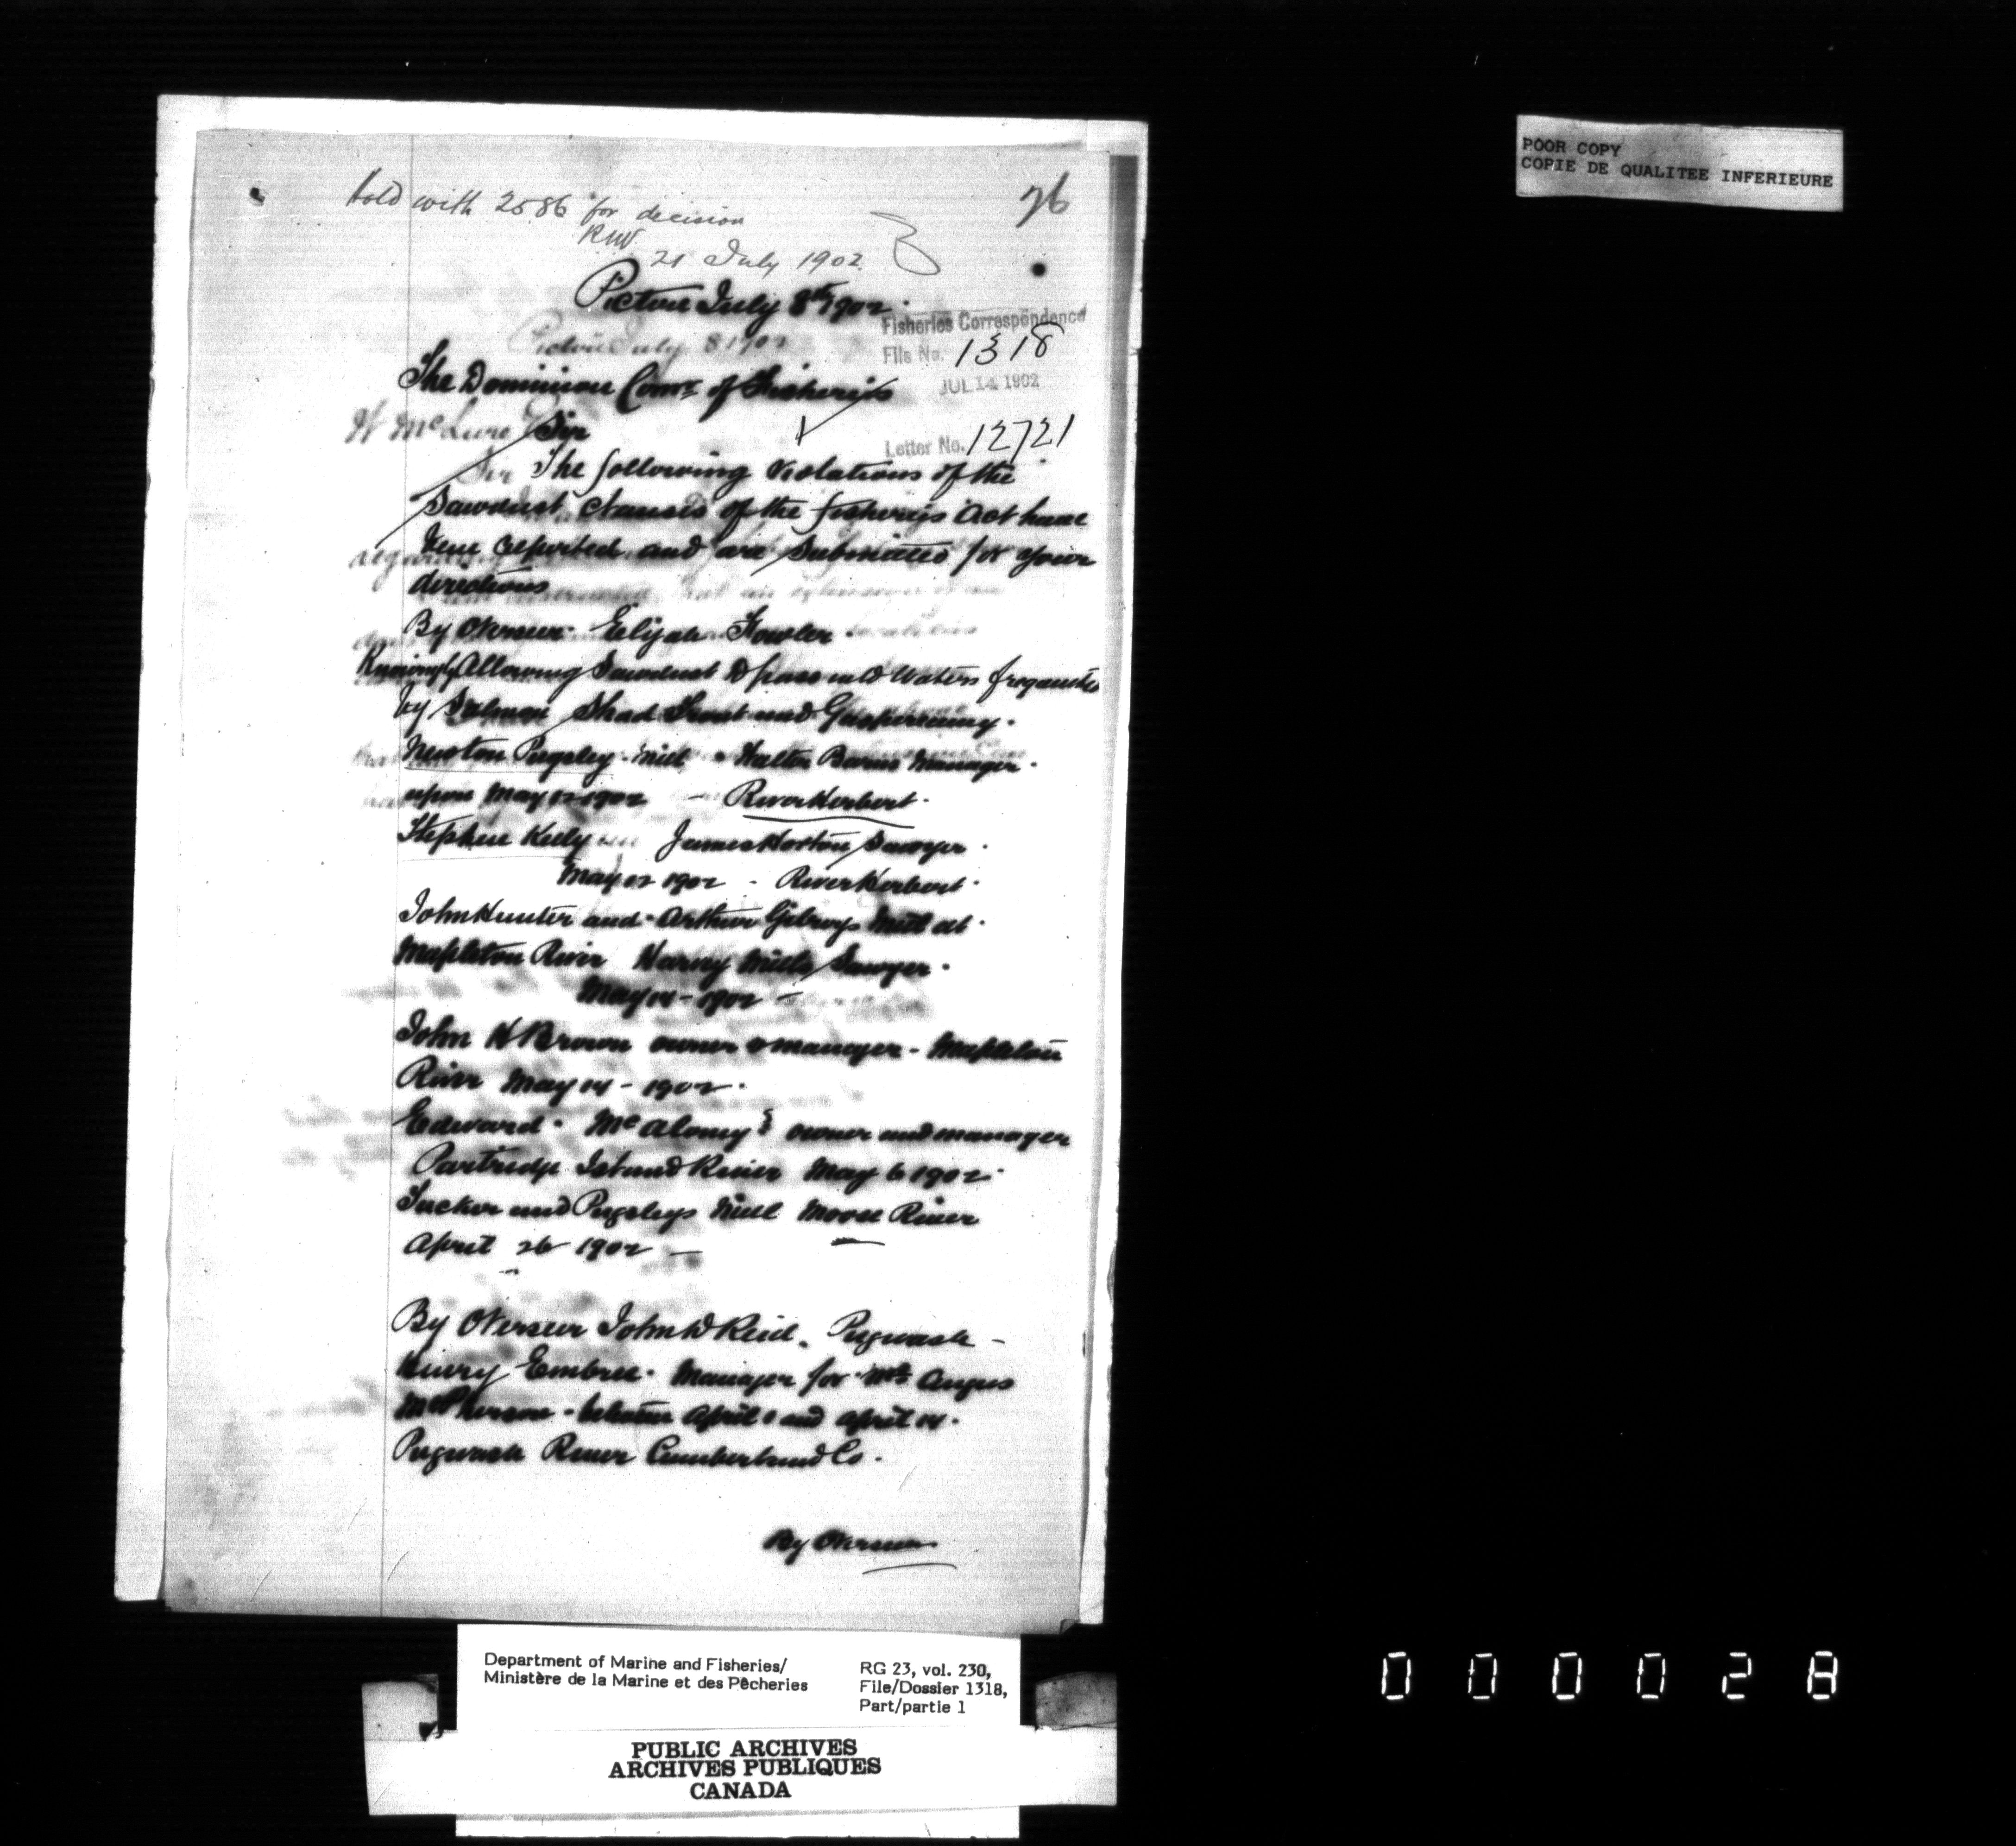 POOR COPY
COPIE DE QUALITEE INFERIEURE
hold with 2586 for decision
RW
21 July 1902
76
Pictou July 8th 1902
Fisheries Correspondence
Pictou July 8 1902
File No. 1318
JUL 14 1902
The Dominion Comr of Fisheries
W McLure
Sir
Letter No. 12721
Sir The following violations of the
Sawdust Clauses of the fisherys Act have
been reported and are submitted for your
directions
By Overseer Elijah Fowler
Knowingly Allowing Sawdust to pass into Waters frequented
by Salmon Shad Trout and
Newton Pugsley Mill Manager
upon May 12 1902 - River Herbert
Stephen Kelly James Horton Sawyer
May 12 1902 - River Herbert
John Hunter and Arthur Gilroys Mill at
Mapleton River Harvey Mills Sawyer
May 14 - 1902 -
John H Brown owner & manager - Mapleton
River May 14 - 1902
Edward McAloney's owner and manager
Partridge Island River May 6 1902
Tucker and Pugsleys Mill Moose River
April 26 1902 -
By Overseer John W Reid. Pugwash -
Embree Manager for Angus
McPherson - between April and April 14
Pugwash River Cumberland Co.
By Overseer
Department of Marine and Fisheries/
Ministère de la Marine et des Pêcheries
RG 23, vol. 230,
File/Dossier 1318,
Part/partie 1
PUBLIC ARCHIVES
ARCHIVES PUBLIQUES
CANADA
000028